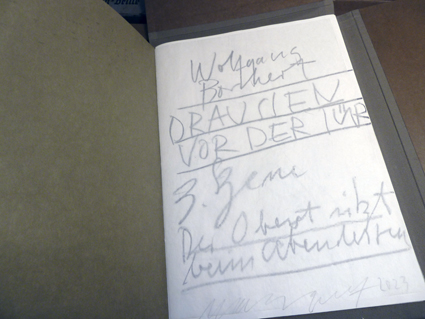 Wolfgang
Borchert
DRAUSSEN
VOR DER TÜR
3. Szene
Der Oberst sitzt
beim Abendessen
2023